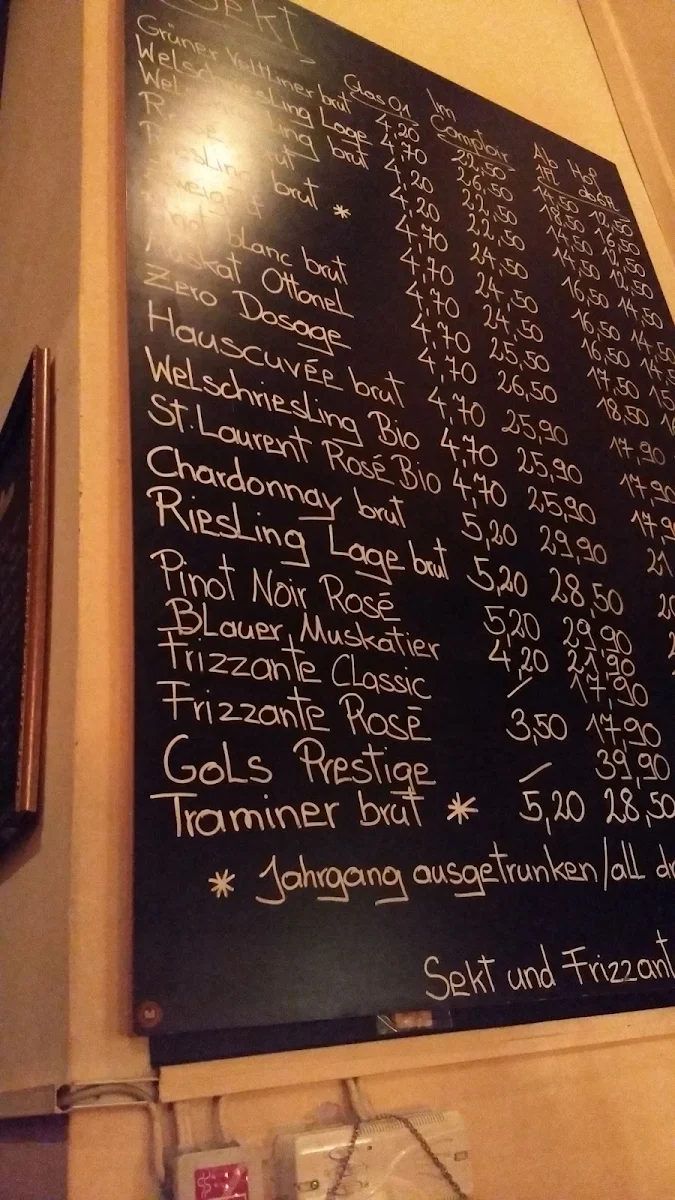 Sekt
Glas 0,1 Im Comptoir Ab Hof 1Fl. ab 6 Fl.
Grüner Veltliner brut 4,20 22,50 14,50 12,50
Welschriesling Lage 4,70 26,50 18,50 16,50
Welschriesling brut 4,20 22,50 14,50 12,50
brut 4,20 22,50 14,50 12,50
Riesling brut * 4,70 24,50 16,50 14,50
Zweigelt 4,70 24,50 16,50 14,50
Pinot blanc brut 4,70 24,50 16,50 14,5
Muskat Ottonel 4,70 25,50 17,50 15
Zero Dosage 4,70 26,50 18,50 16
Hauscuvée brut 4,70 25,90 17,90
Welschriesling Bio 4,70 25,90 17,90
St.Laurent Rosé Bio 4,70 25,90 17,9
Chardonnay brut 5,20 29,90 21
Riesling Lage brut 5,20 28,50 20
Pinot Noir Rosé 5,20 29,90
Blauer Muskatier 4,20 21,90
Frizzante Classic / 17,90
Frizzante Rosé 3,50 17,90
Gols Prestige / 39,90
Traminer brut * 5,20 28,50
* Jahrgang ausgetrunken/all dr
Sekt und Frizzant